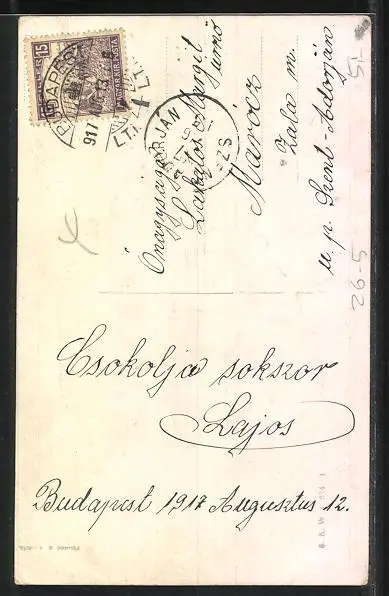 15
MAGYAR KIR. POSTA
BUDAPEST
917
Őnagysága
Lakatos Margit
úrnő
Marócz
Zala m.
u. p. Szent-Adorján
15-
26-5
Csokolja sokszor
Lajos
Budapest 1917 Augusztus 12.